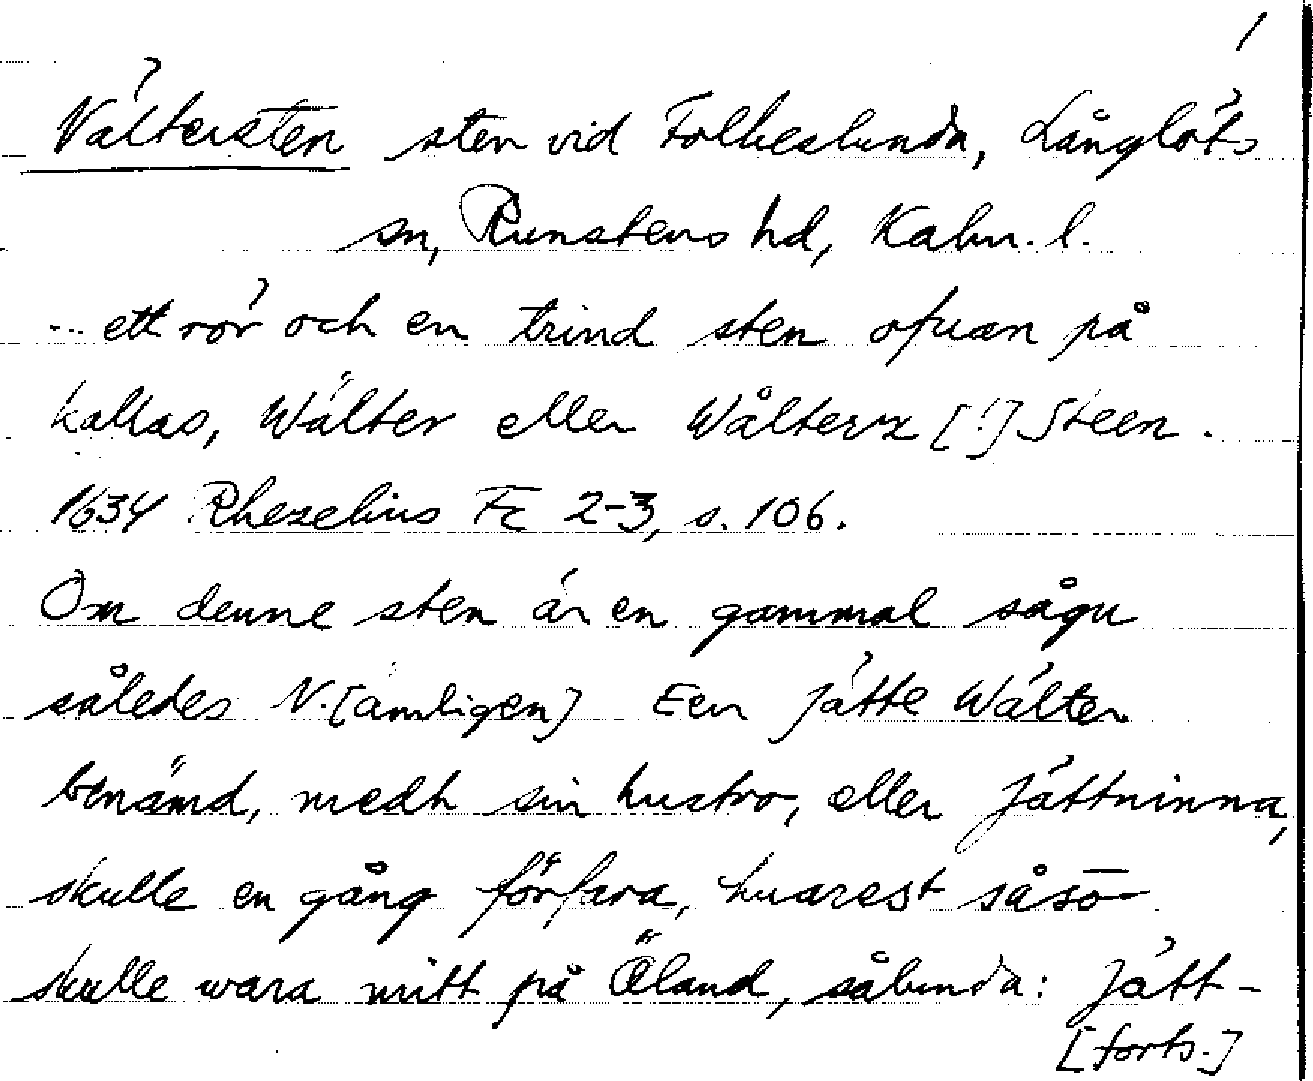 1
Vältersten sten vid Folkeslunda, Långlöts
sn, Runstens hd, Kalm. l.
... ett rör och en trind sten ofuan på
kallas, Wälter eller Wålterz [!] Steen.
1634 Rhezelius Fc 2-3, s. 106.
Om denne sten är en gammal sågu
således N.[ämligen] Een Jätte Wälter
benämd, medh sin hustro, eller Jättninna,
skulle en gång förfara, huarest såsō
skulle wara mitt på Öland, sålunda: Jätt-
[forts.]